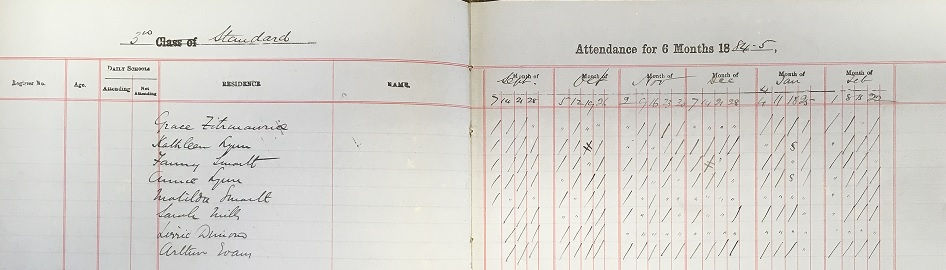 3rd Class of Standard
Attendance for 6 Months 1884-5.
Register No. Age. DAILY SCHOOLS Attending Not Attending RESIDENCE NAME.
Month of Sept. Month of Oct Month of Nov Month of Dec Month of Jan Month of Feb
7 14 21 28 5 12 19 26 2 9 16 23 30 7 14 21 28 4 11 18 25 1 8 15 22
Grace Fitzmaurice
Kathleen Lynn
Fanny Smartt
Annie Lynn
Matilda Smartt
Sarah Mills
Lizzie
Arthur Evans